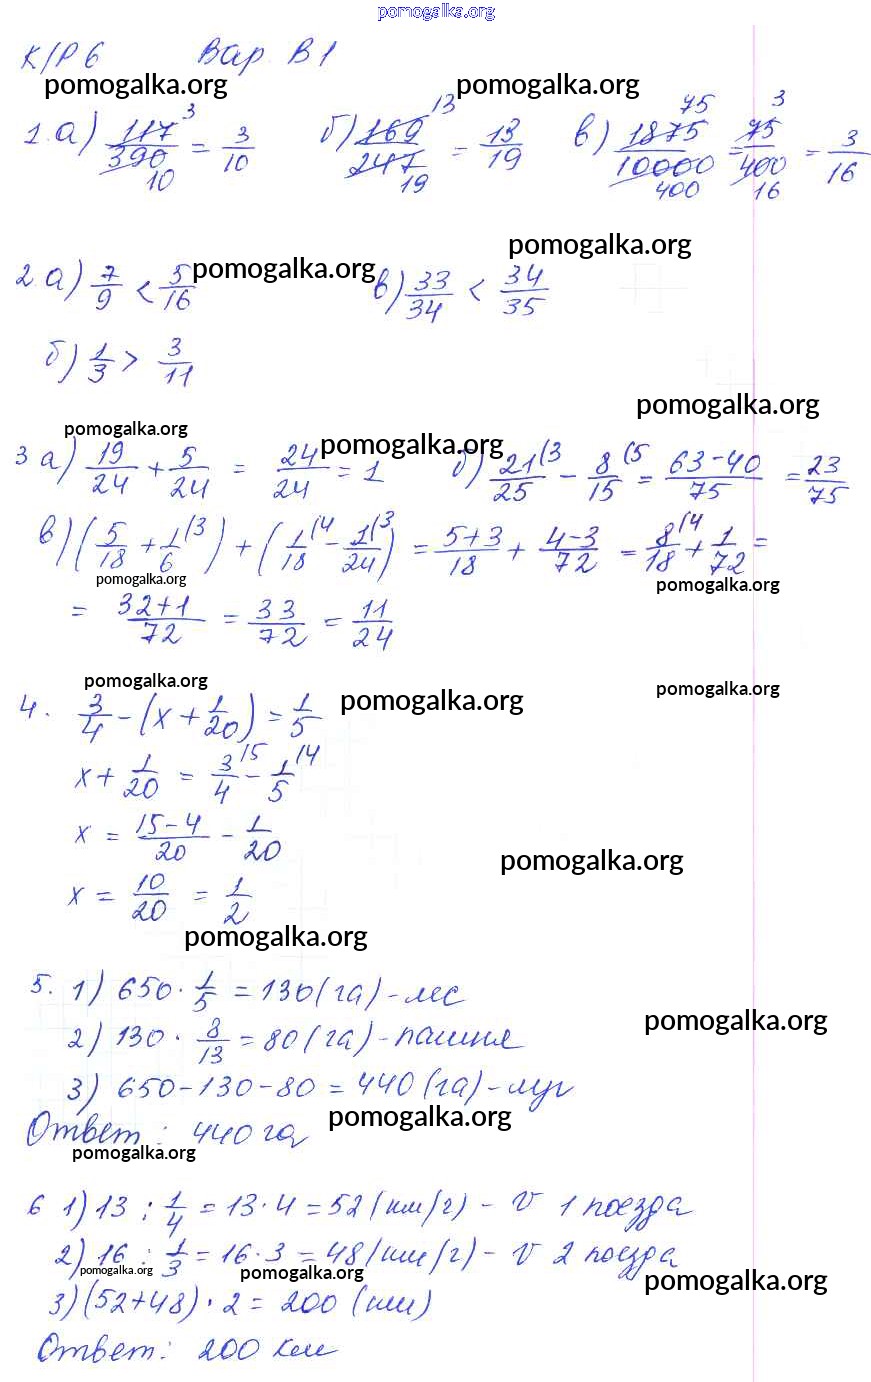 pomogalka.org
К/Р 6 Вар. В1
pomogalka.org pomogalka.org
1. а) 117/390 = 3/10 б) 169/247 = 13/19 в) 1875/10000 = 75/400 = 3/16
pomogalka.org
2. а) 7/9 < 5/16 pomogalka.org в) 33/34 < 34/35
б) 1/3 > 3/11
pomogalka.org
pomogalka.org pomogalka.org
3 а) 19/24 + 5/24 = 24/24 = 1 б) 21/25 (3 - 8/15 (5 = 63-40/75 = 23/75
в) (5/18 + 1/6 (3) + (1/18 (4 - 1/24 (3) = 5+3/18 + 4-3/72 = 8/18 (4 + 1/72 =
pomogalka.org pomogalka.org
= 32+1/72 = 33/72 = 11/24
pomogalka.org pomogalka.org pomogalka.org
4. 3/4 - (x + 1/20) = 1/5
x + 1/20 = 3/4 (5 - 1/5 (4
x = 15-4/20 - 1/20
pomogalka.org
x = 10/20 = 1/2
pomogalka.org
5. 1) 650 · 1/5 = 130 (га) - лес
pomogalka.org
2) 130 · 8/13 = 80 (га) - пашня
3) 650-130-80 = 440 (га) - луг
pomogalka.org
Ответ: 440 га
pomogalka.org
6 1) 13 : 1/4 = 13·4 = 52 (км/г) - v 1 поезда
2) 16 : 1/3 = 16·3 = 48 (км/г) - v 2 поезда
pomogalka.org pomogalka.org pomogalka.org
3) (52+48)·2 = 200 (км)
Ответ: 200 км